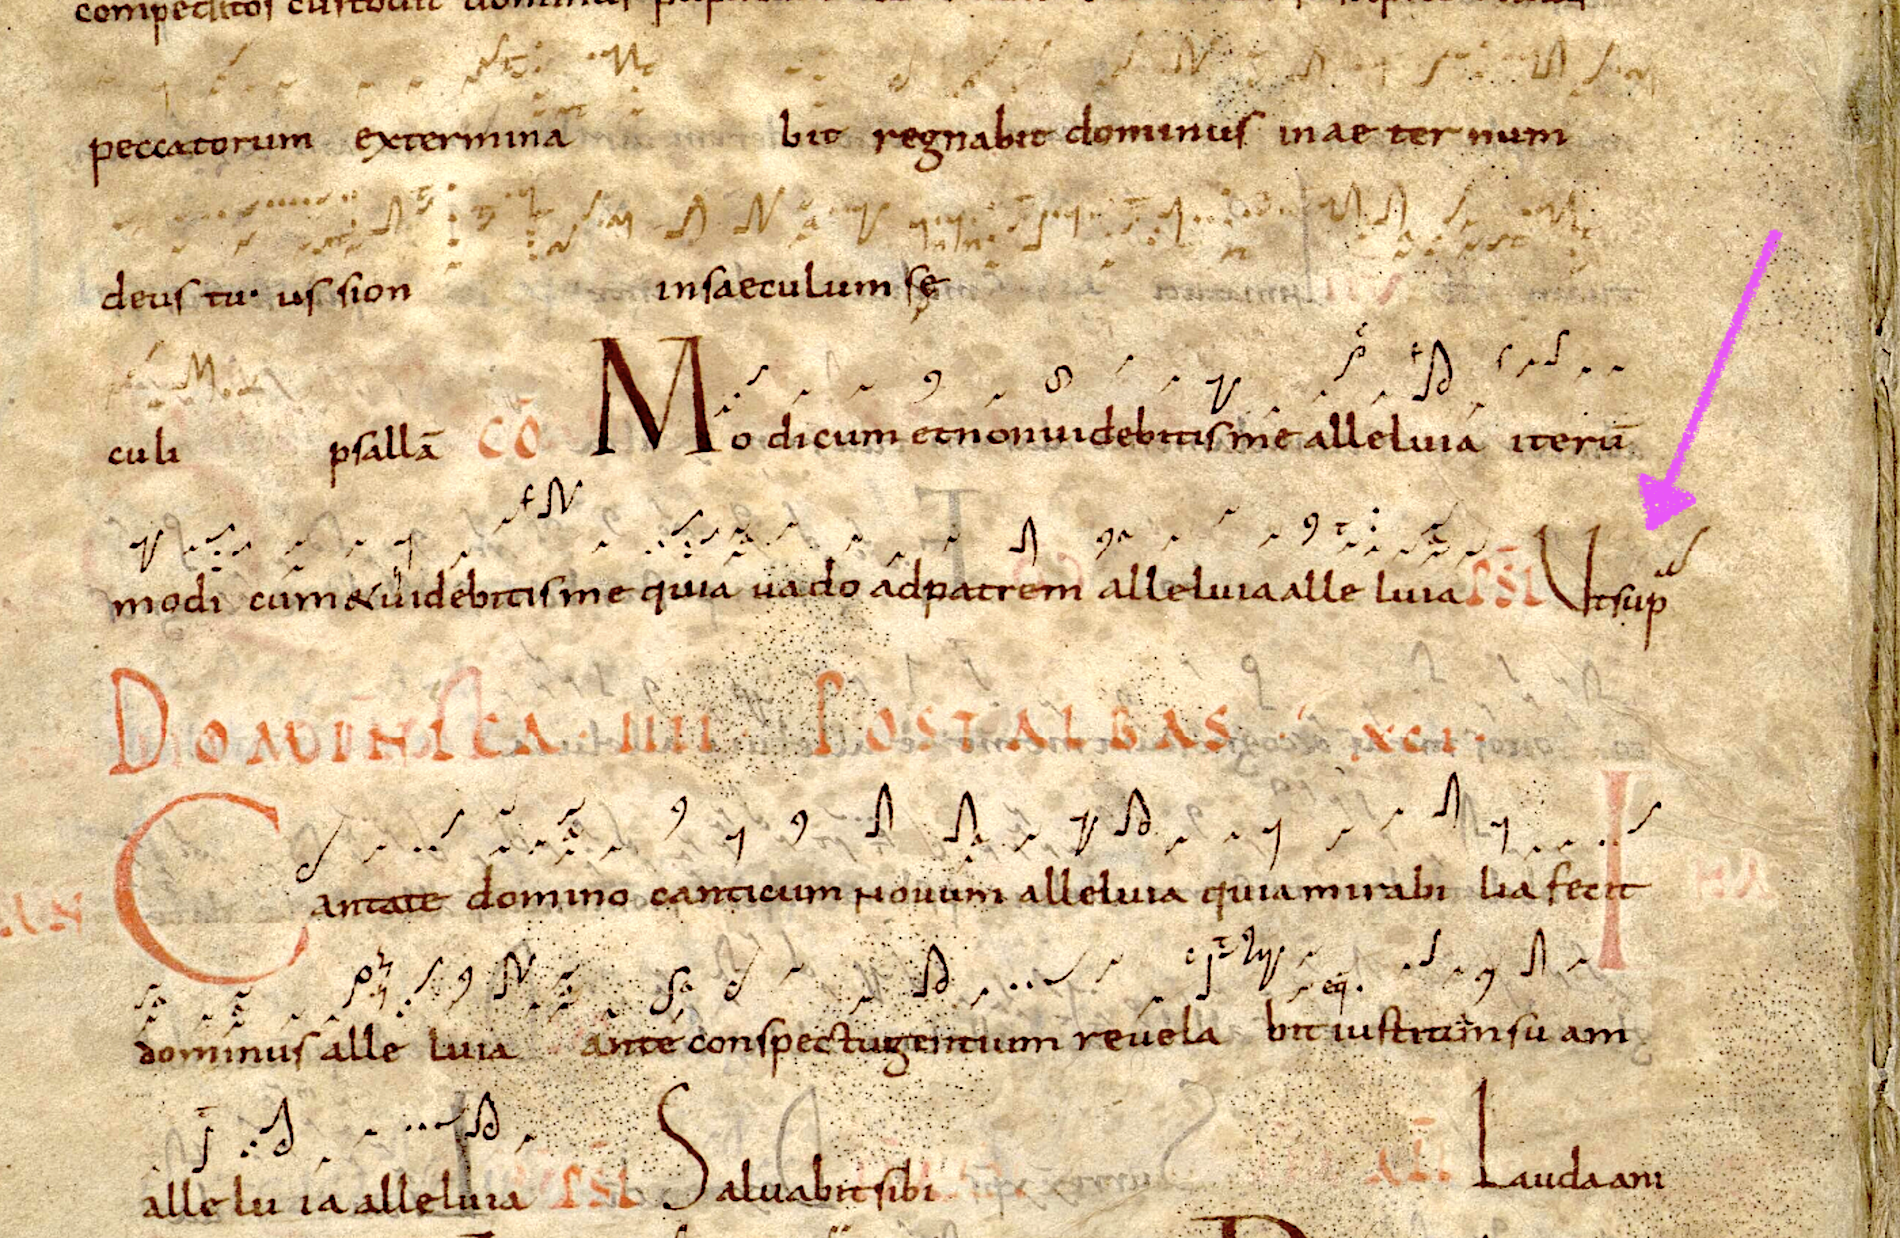 peccatorum extermina bit regnabit dominus inae ter num
deus tu· us sion insaeculum sę
culi psallā CŌ Modicum etnonuidebitis me alleluia iterū
modi cum & uidebitis me quia uado adpatrem alleluia alle luia PSL Vt sup
DOMINICA IIII POST ALBAS XCII
AN Cantate domino canticum nouum alleluia quia mirabi lia fecit
dominus alle luia ante conspectu gentium reuela bit iustitiā su am
alle lu ia alleluia PSL Saluabit sibi ALL Lauda ani